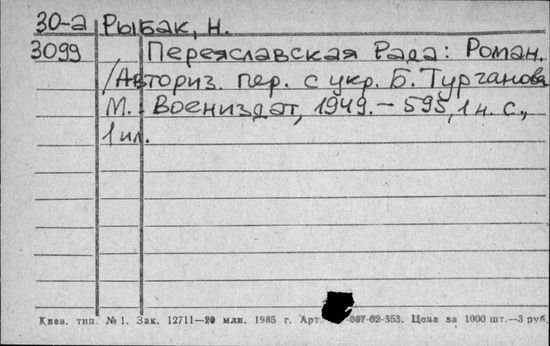 30-а Рыбак, Н.
3099 Переяславская Рада: Роман.
/Авториз. пер. с укр. Б. Турганова
М.: Воениздат, 1949. – 595, 1 н. с.,
1 ил.
Киев. тип. № 1. Зак. 12711—20 млн. 1985 г. Арт. -307-02-353. Цена за 1000 шт.—3 руб